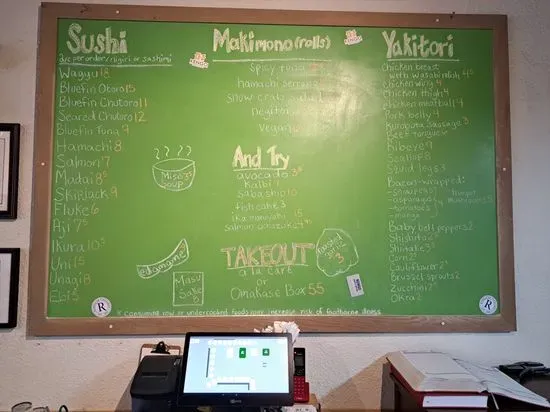 Sushi
2pc per order/nigiri or sashimi
Wagyu 18
Bluefin Otoro 15
Bluefin Chutoro 11
Seared Chutoro 12
Bluefin Tuna 9
Hamachi 8
Salmon 7
Madai 8.5
Skipjack 9
Fluke 6
Aji 7.5
Ikura 10.5
Uni 15
Unagi 8
Ebi 5
Miso Soup
edamame
Masu Sake
Makimono (rolls)
spicy tuna
hamachi serrano
snow crab
negitoro
vegan
And Try
avocado
Kalbi
Saba shio 10
fish cake 3
ika maruyaki 15
salmon
TAKEOUT
a la carte
or
Omakase Box 55
roasted
3
Yakitori
Chicken breast
with wasabi
Chicken wing 4
Chicken thigh 4
Chicken meatball 4
Pork belly 4
Kurobuta Sausage 3
Beef tongue
Ribeye 9
Scallop 8
Squid legs 3
Bacon-wrapped:
-asparagus
-tomatoes
-mango
trumpet mushrooms
Baby bell peppers 2
Shishito
Shiitake 3
Corn 2
Cauliflower
Brussel sprouts 2
Zucchini 2
Okra 2
R
R
* consuming raw or undercooked foods may increase risk of foodborne illness